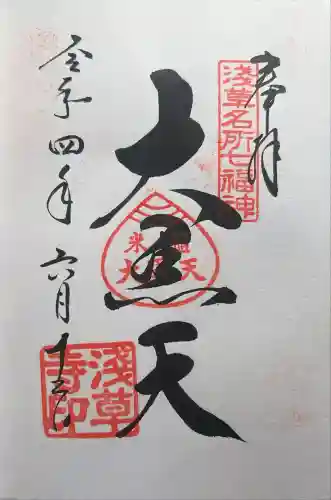 奉拝
浅草名所七福神
大黒天
令和四年六月十三日
浅草寺印